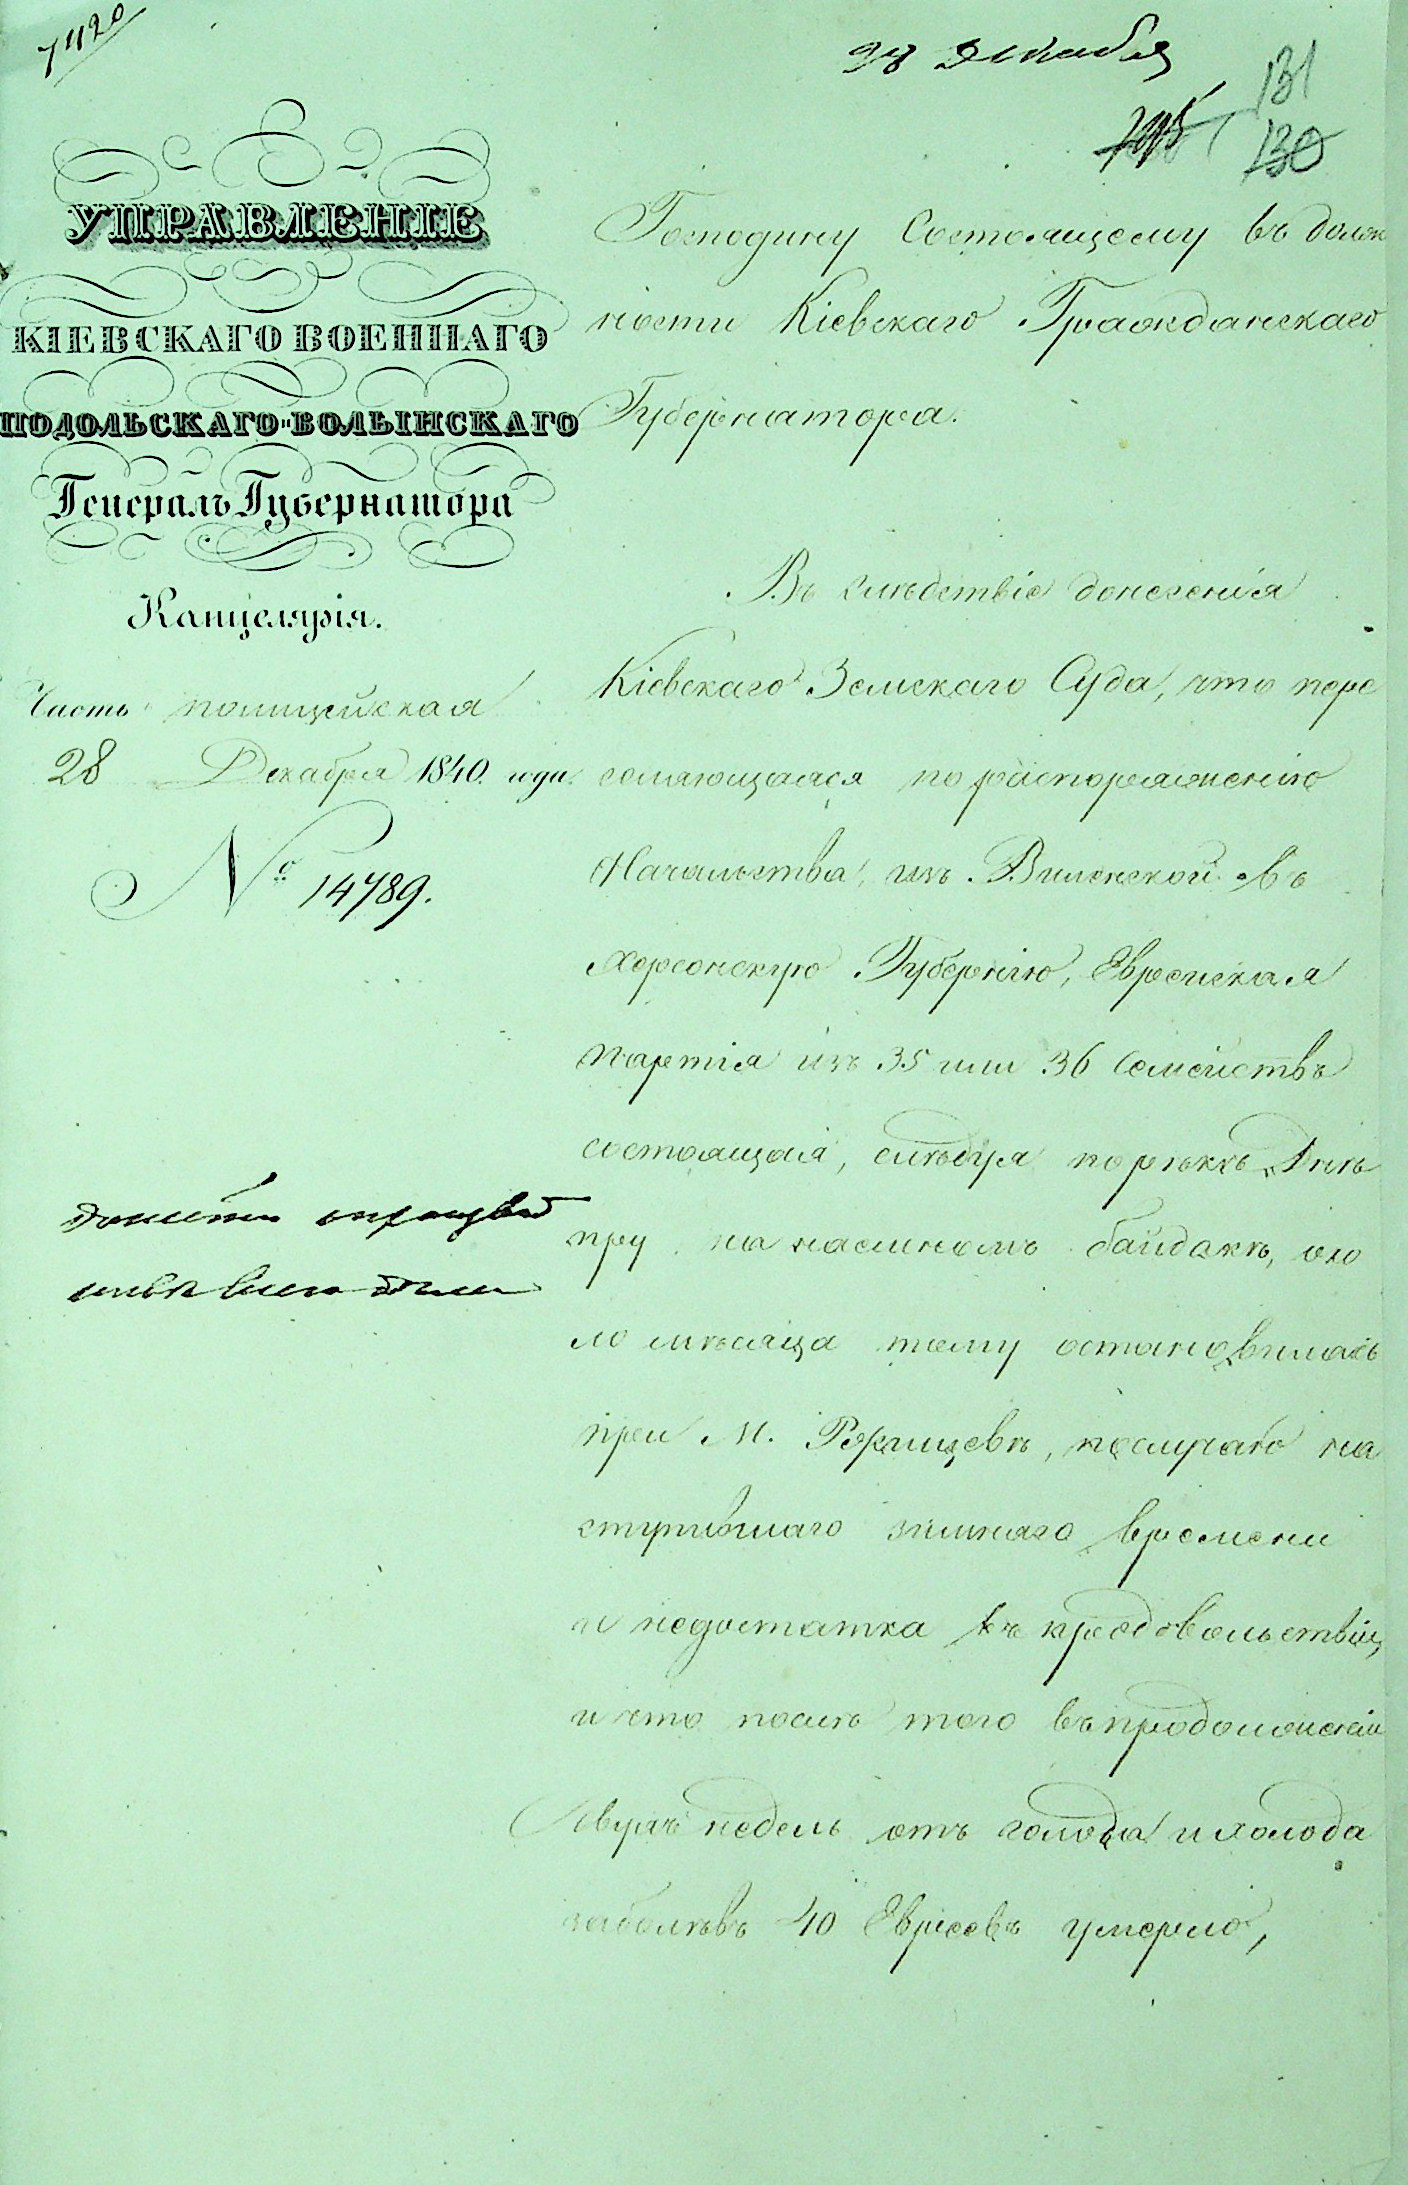 7420
28 Декабря
131
130
УПРАВЛЕНІЕ
КІЕВСКАГО ВОЕННАГО
ПОДОЛЬСКАГО и ВОЛЫНСКАГО
Генералъ Губернатора
Канцелярія.
Часть полицейская
28 Декабря 1840. года.
№ 14789.
Господину Состоящему въ долж
ности Кіевскаго Гражданскаго
Губернатора.
Въ слѣдствіе донесенія
Кіевскаго Земскаго Суда, что пере
селяющаяся по распоряженію
Начальства, изъ Виленской въ
Херсонскую Губернію, Еврейская
партія изъ 35 или 36 семействъ
состоящая, слѣдуя по рѣкѣ Днѣ
пру, на наемномъ байдакѣ, око
ло мѣсяца тому остановилась
при М. Ржищевѣ, по случаю на
ступившаго зимняго времени
и недостатка въ продовольствіи,
и что послѣ того въ продолженіи
двухъ недель отъ голода и холода
заболѣвъ 40 Евреевъ умерло,